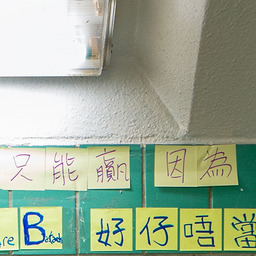 只能贏 因為
B 好仔唔當